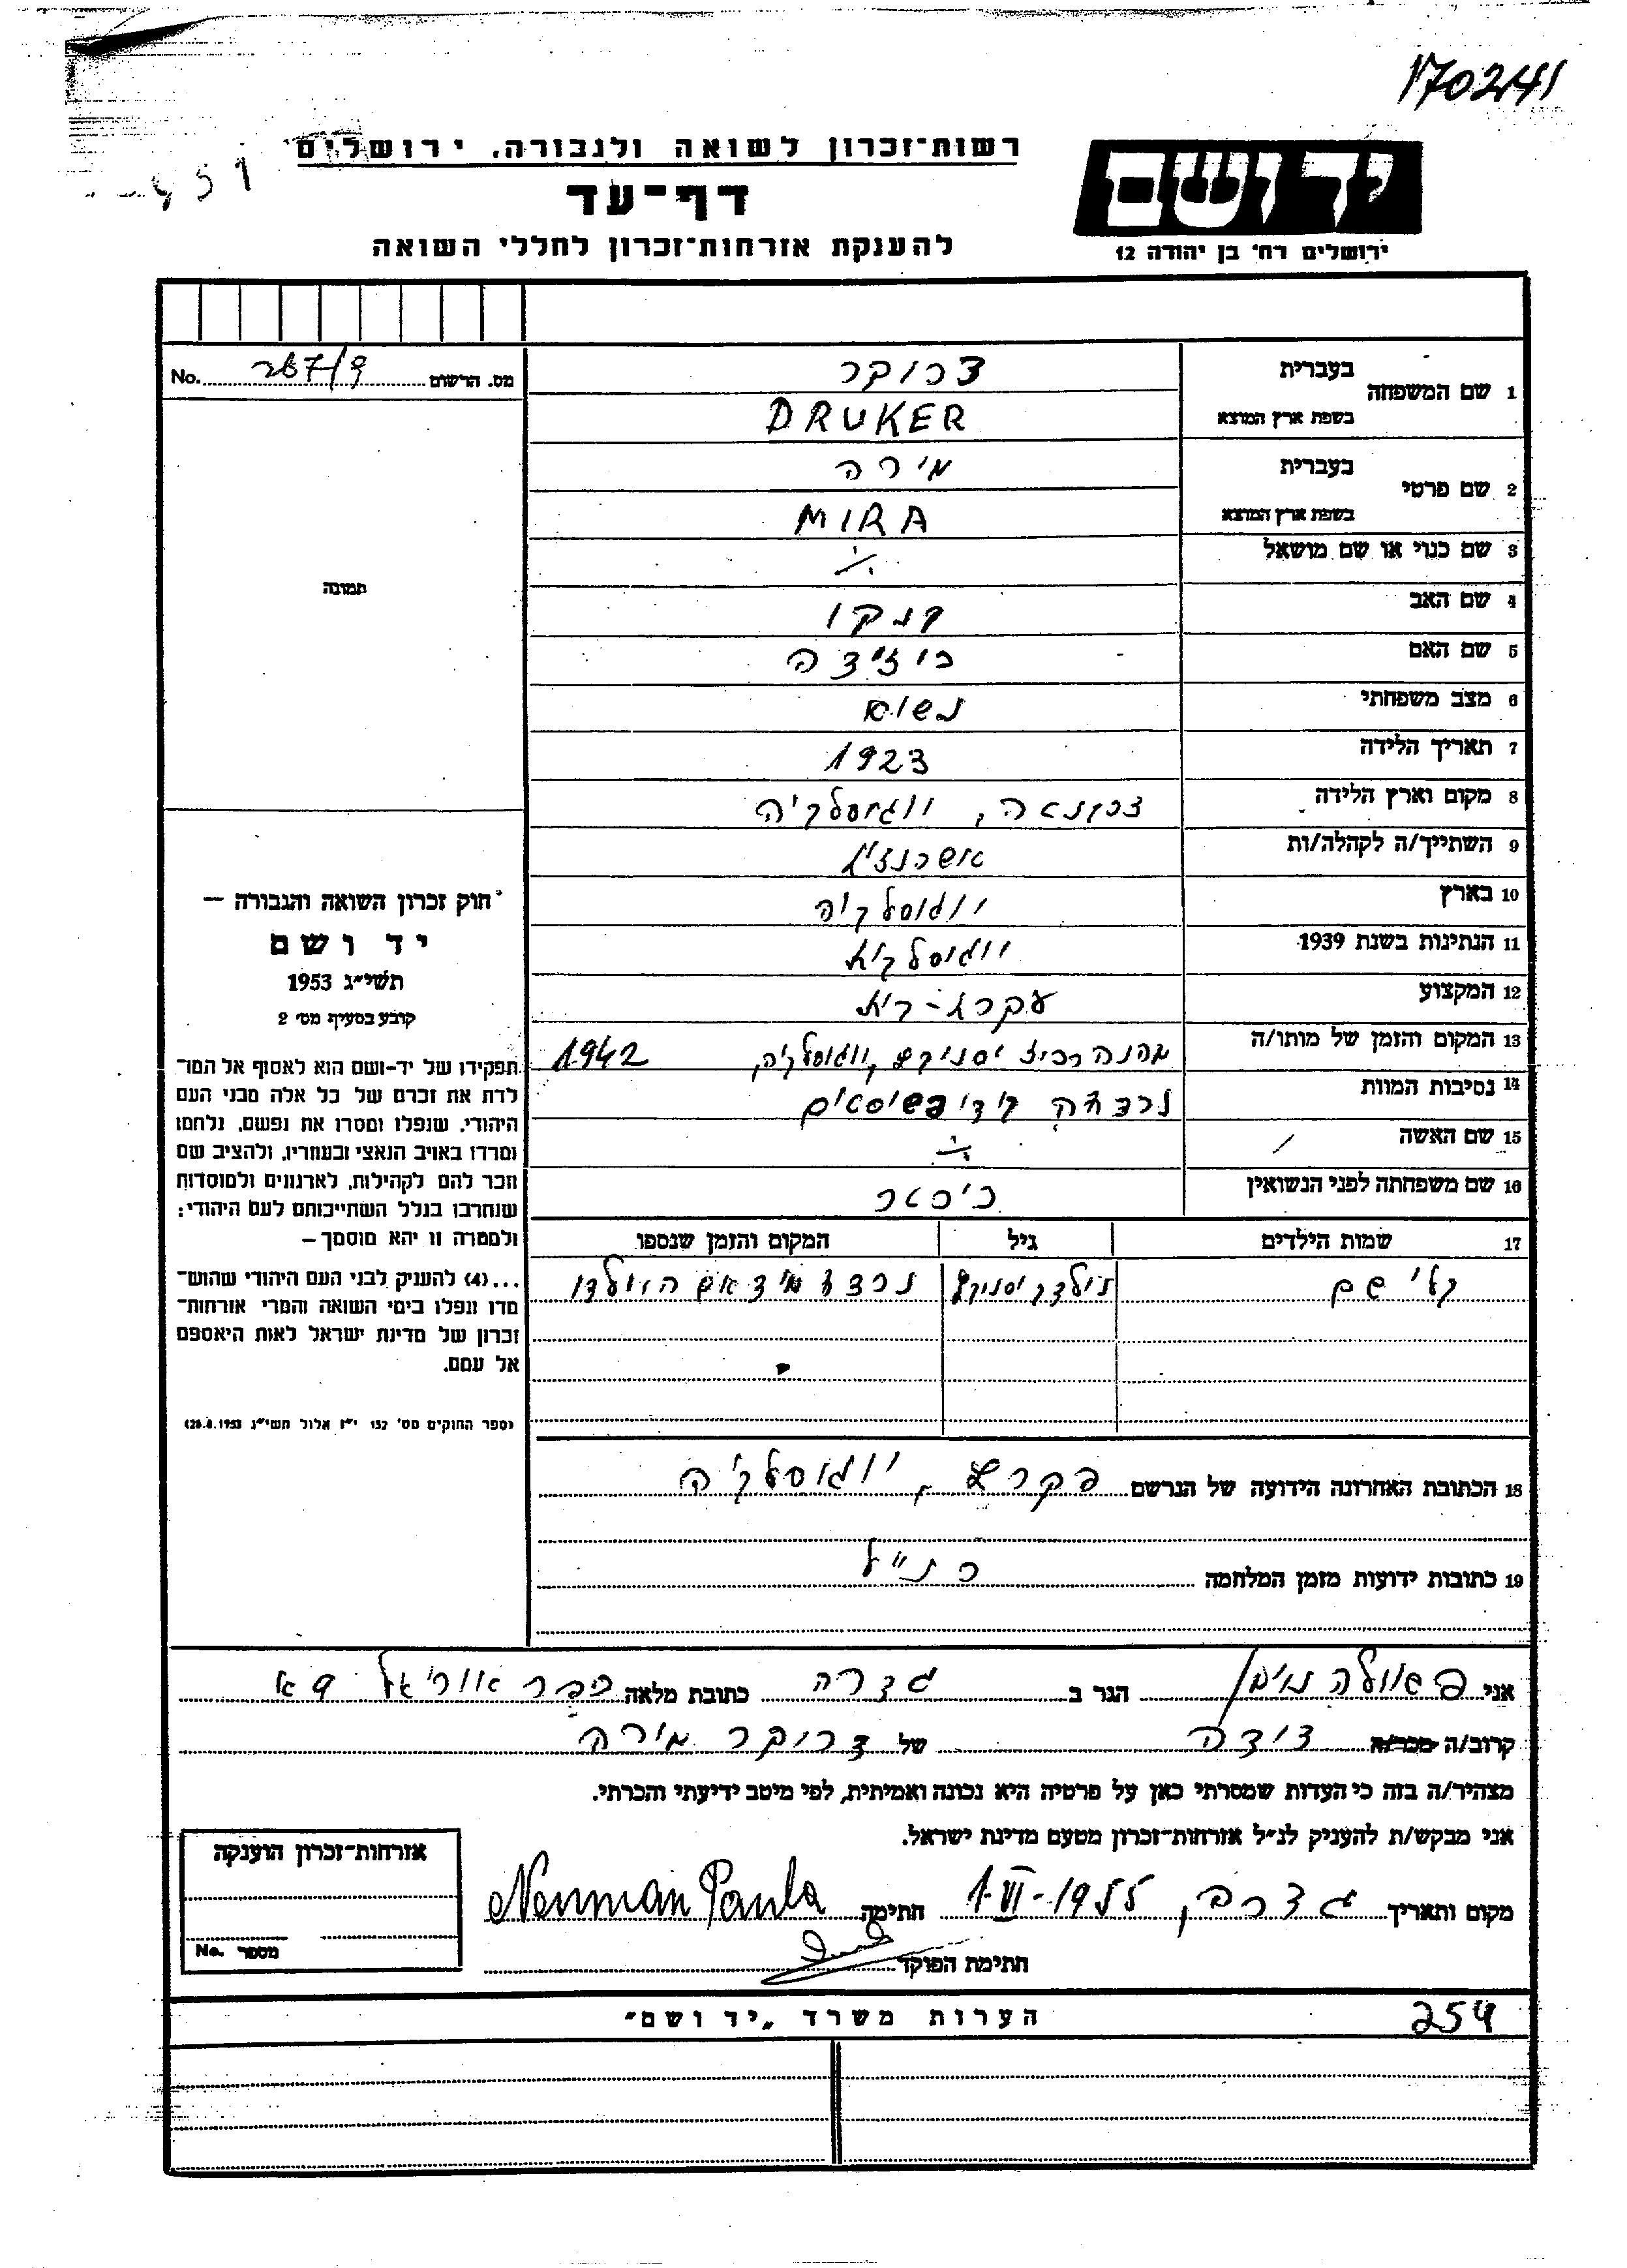 170241
רשות־זכרון לשואה ולגבורה, ירושלים
דף־עד
להענקת אזרחות־זכרון לחללי השואה
יד ושם
ירושלים רח' בן יהודה 12
מס. הרשום No.
1 שם המשפחה בעברית דרוקר
בשפת ארץ המוצא DRUKER
2 שם פרטי בעברית מירה
בשפת ארץ המוצא MIRA
3 שם כנוי או שם מושאל
4 שם האב
5 שם האם
6 מצב משפחתי נשוא
7 תאריך הלידה 1923
8 מקום וארץ הלידה יוגוסלביה
9 השתייך/ה לקהלה/ות
10 בארץ יוגוסלביה
11 הנתינות בשנת 1939
12 המקצוע עקרת-בית
13 המקום והזמן של מותו/ה מחנה רכוז יסנובץ, יוגוסלביה, 1942
14 נסיבות המוות נרצחה בידי פשיסטים
15 שם האשה
16 שם משפחתה לפני הנשואין
17 שמות הילדים גיל המקום והזמן שנספו
בלי שם נולד ביסנובץ
18 הכתובת האחרונה הידועה של הנרשם יוגוסלביה
19 כתובות ידועות מזמן המלחמה כנ"ל
תמונה
חוק זכרון השואה והגבורה —
יד ושם
תשי״ג 1953
קובע בסעיף מס' 2
תפקידו של יד-ושם הוא לאסוף אל המו־
לדת את זכרם של כל אלה מבני העם
היהודי, שנפלו ומסרו את נפשם, נלחמו
ומרדו באויב הנאצי ובעוזריו, ולהציב שם
וזכר להם לקהילות, לארגונים ולמוסדות
שנחרבו בגלל השתייכותם לעם היהודי;
ולמטרה זו יהא מוסמך —
...(4) להעניק לבני העם היהודי שהוש־
מדו ונפלו בימי השואה והמרי אזרחות־
זכרון של מדינת ישראל לאות היאספם
אל עמם.
(ספר החוקים מס' 132 י״ז אלול תשי״ג 28.8.1953)
אני פאולה נוימן הגר ב גדרה כתובת מלאה
קרוב/ה מכר/ה דודה של דרוקר מירה
מצהיר/ה בזה כי העדות שמסרתי כאן על פרטיה היא נכונה ואמיתית, לפי מיטב ידיעתי והכרתי.
אני מבקש/ת להעניק לנ״ל אזרחות־זכרון מטעם מדינת ישראל.
מקום ותאריך גדרה, 1-VI-1955 חתימה Neuman Paula
חתימת הפוקד
אזרחות־זכרון הוענקה
מספר No.
הערות משרד „יד ושם״
254